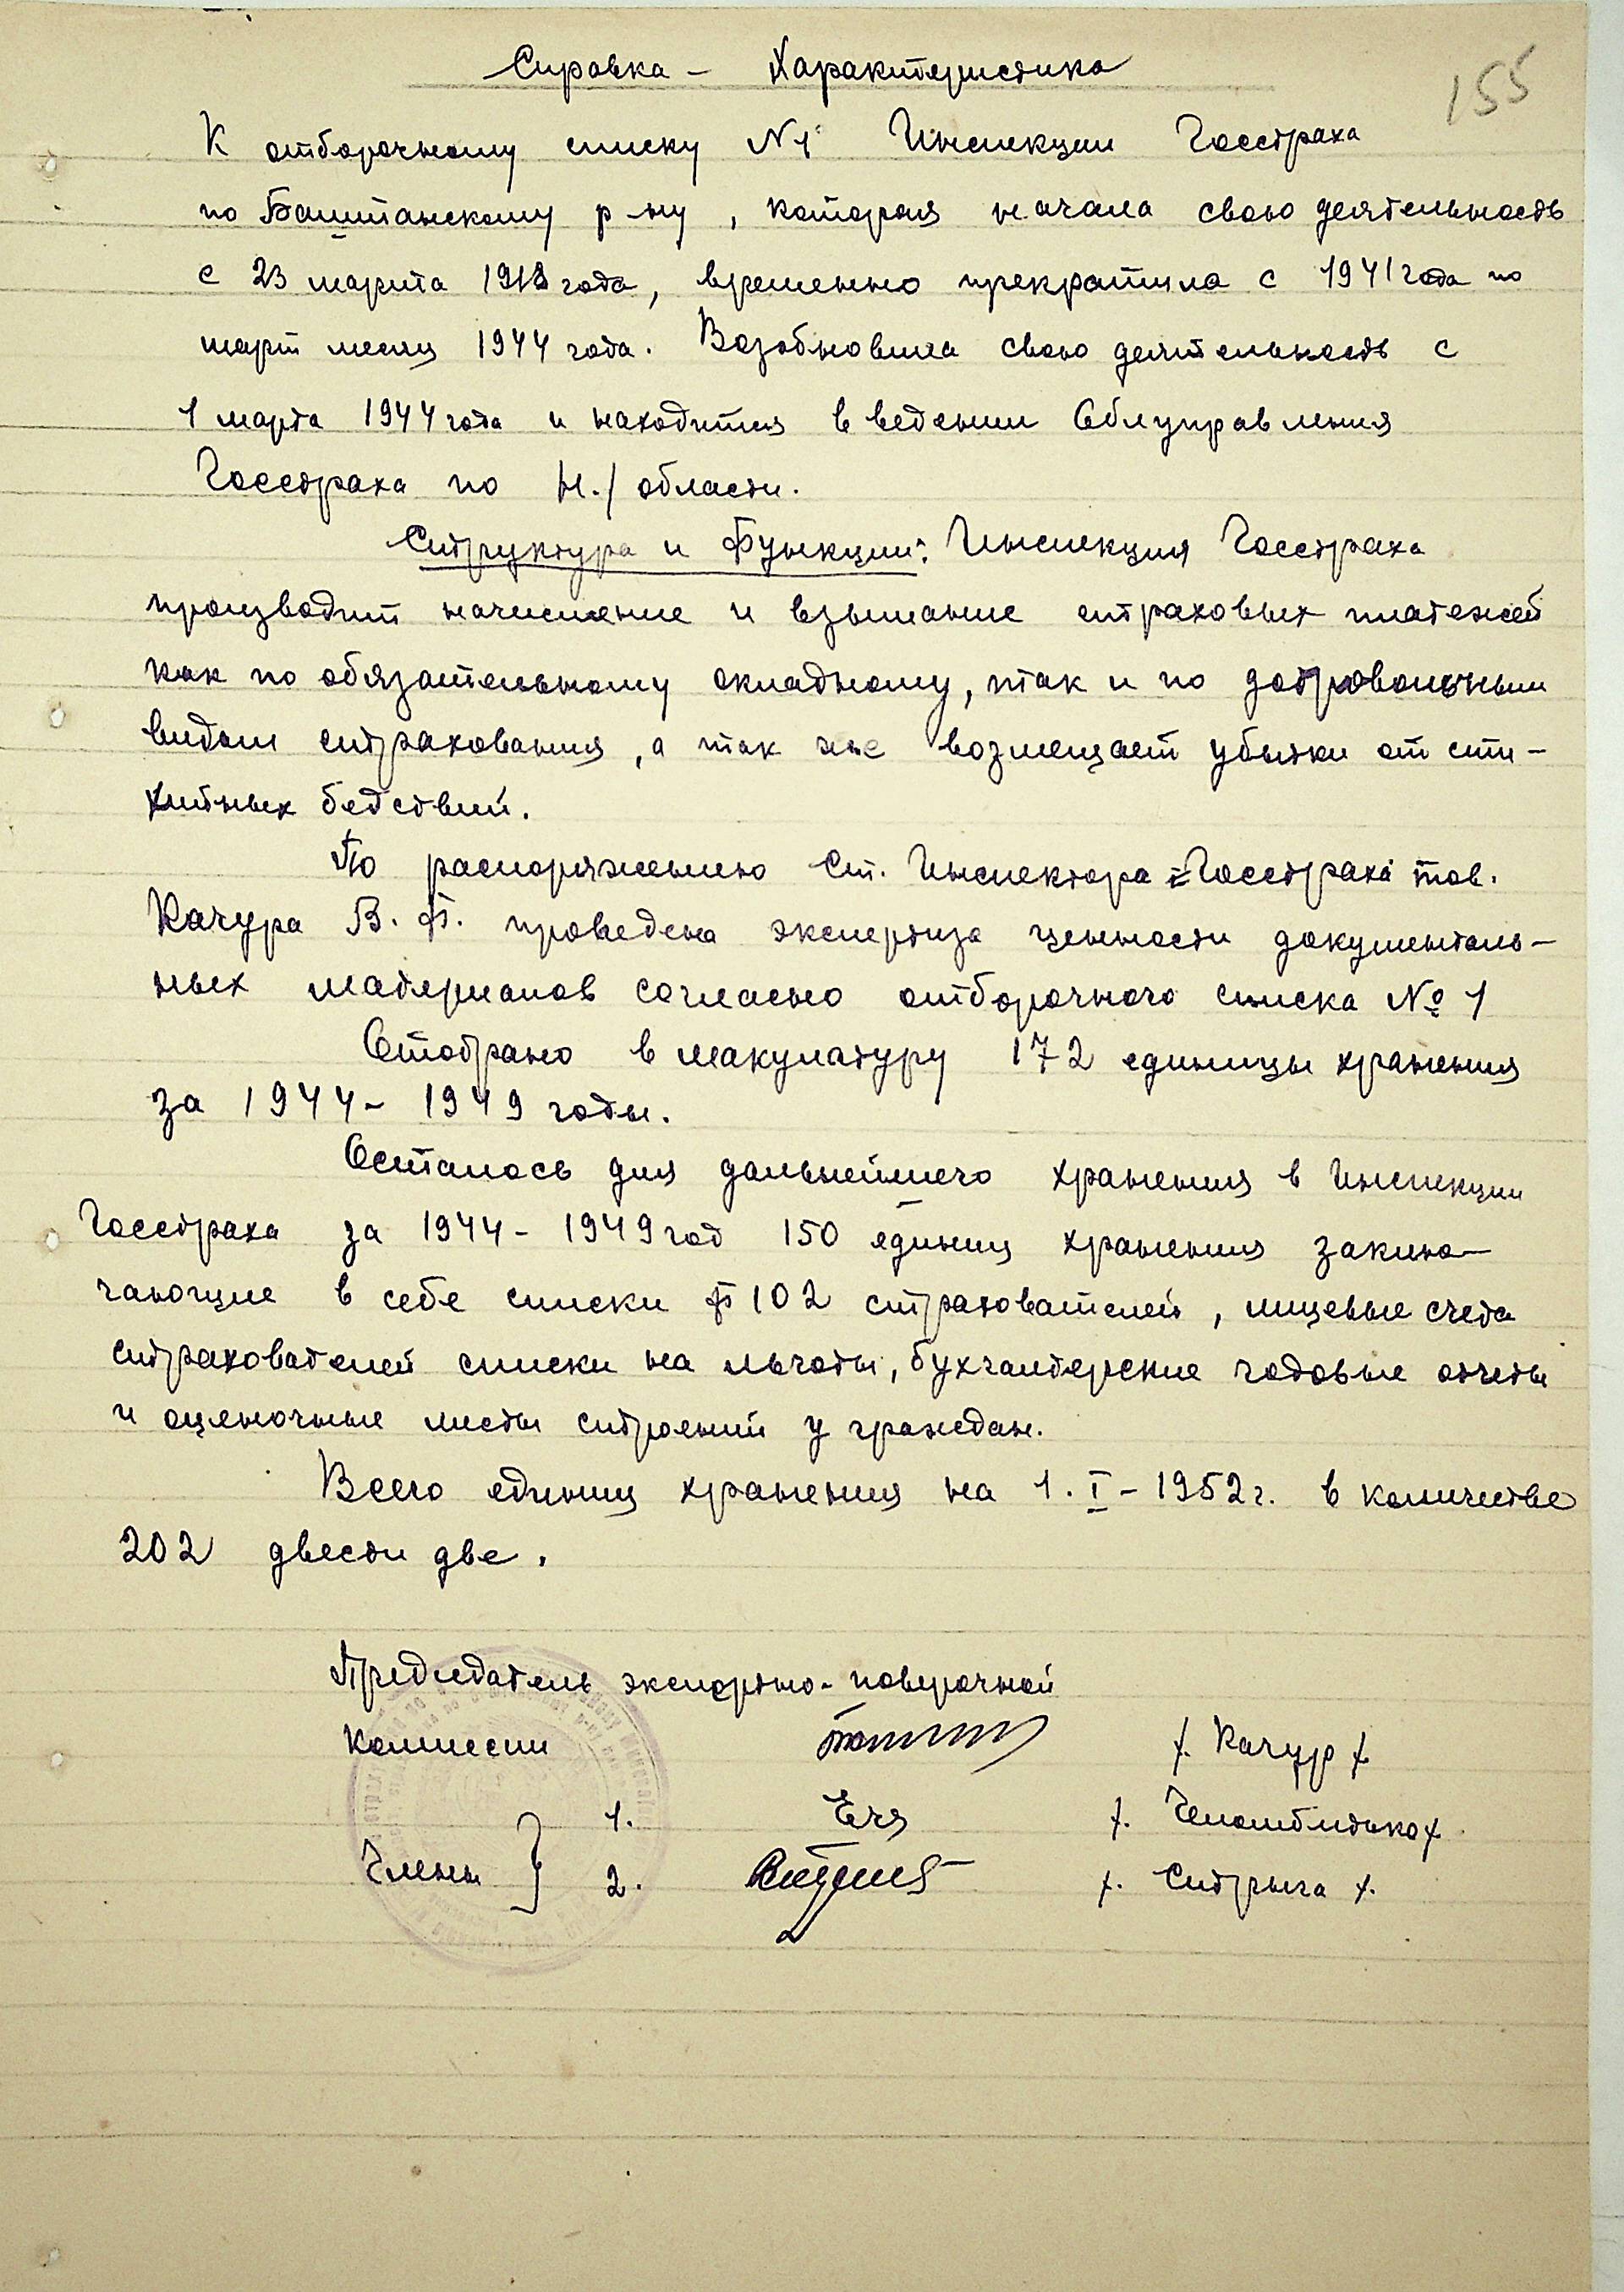 155
Справка - Характеристика
К отборочному списку №1 Инспекции Госстраха
по Баштанскому р-ну, которая начала свою деятельность
с 23 марта 1918 года, временно прекратила с 1941 года по
март месяц 1944 года. Возобновила свою деятельность с
1 марта 1944 года и находится в ведении Облуправления
Госстраха по Н./ области.
Структура и Функции: Инспекция Госстраха
производит начисление и взымание страховых платежей
как по обязательному окладному, так и по добровольным
видам страхования, а так же возмещает убытки от сти-
хийных бедствий.
По распоряжению Ст. Инспектора Госстраха тов.
Качура В. Ф. проведена экспертиза ценности документаль-
ных материалов согласно отборочного списка № 1
Отобрано в макулатуру 172 единицы хранения
за 1944 - 1949 годы.
Осталось для дальнейшего хранения в Инспекции
Госстраха за 1944 - 1949 год 150 единиц хранения заклю-
чающие в себе списки ф 102 страхователей, лицевые счета
страхователей списки на льготы, бухгалтерские годовые отчеты
и оценочные листы строений у граждан.
Всего единиц хранения на 1. I - 1952 г. в количестве
202 двести две.
Председатель экспертно-поверочной
Комиссии /. Качур /.
1. /.
Члены } 2. /. Стрыга /.